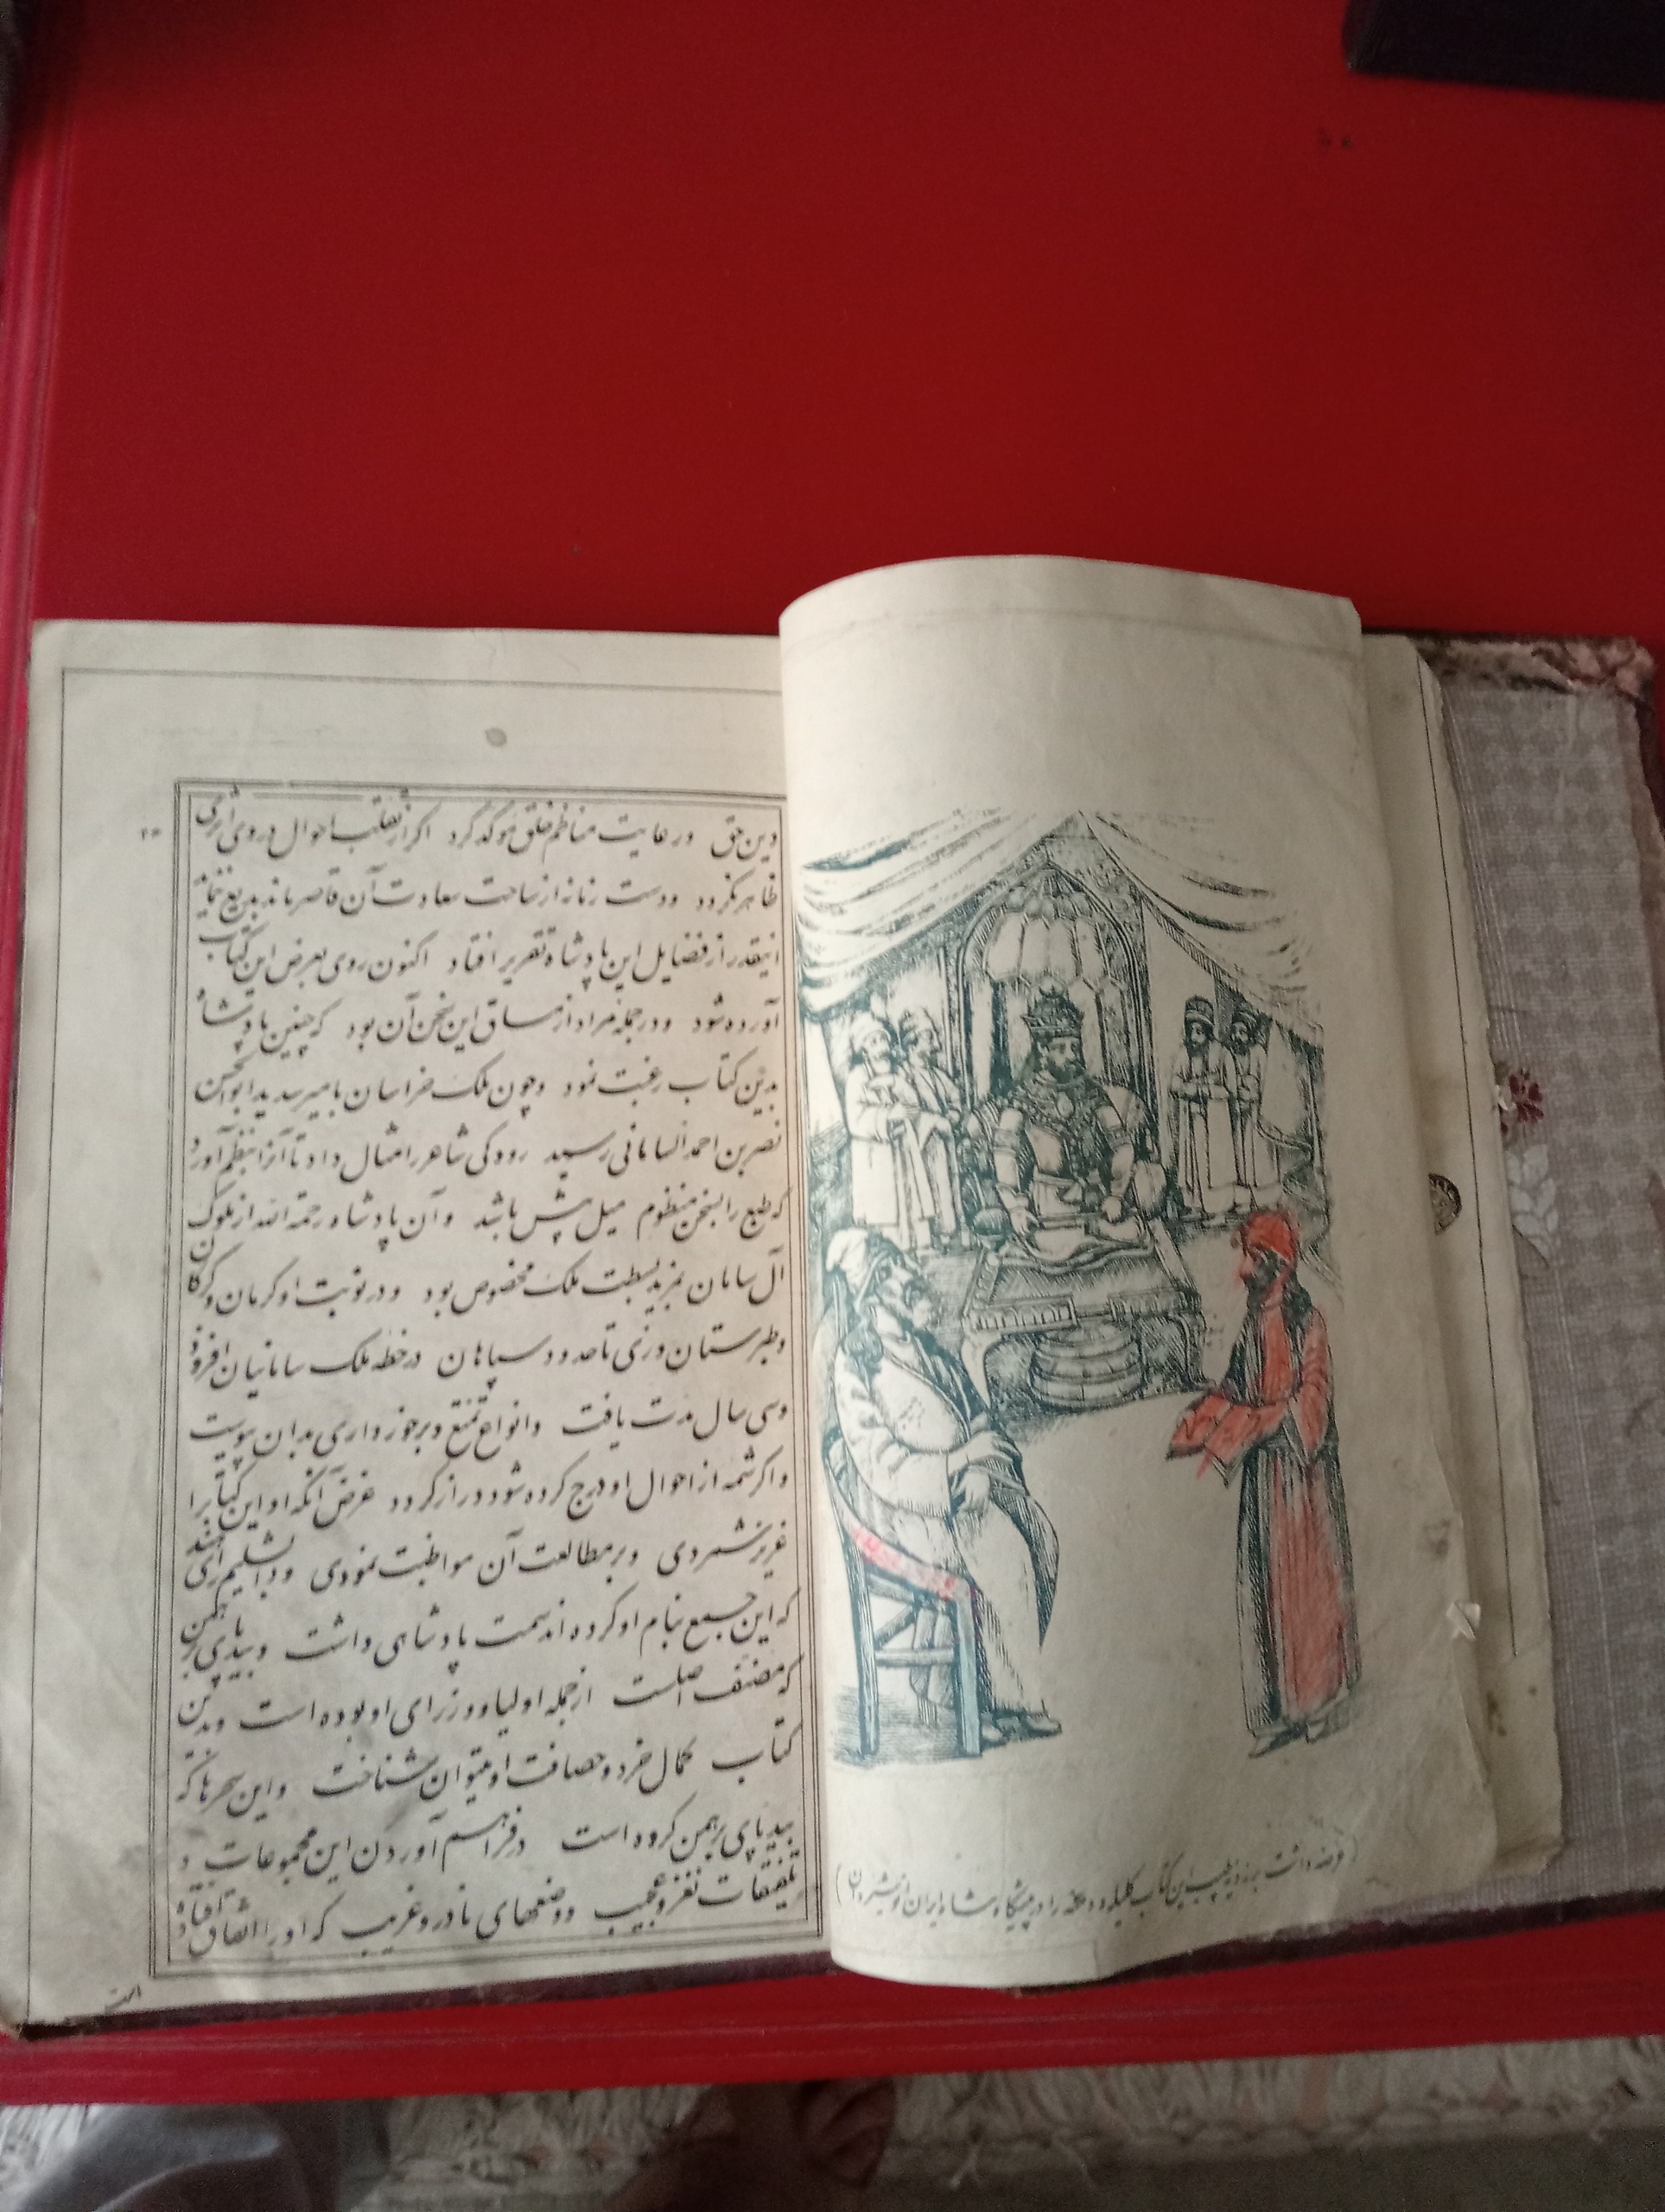 دین حق و رعایت مناظم خلق مؤکد گردد اگر از تقلب احوال در وی اثری
ظاهر نگردد و دست زمانه از ساحت سعادت آن قاصر ماند بدیع ننماید
اینقدر از فضایل این پادشاه تقریر افتاد اکنون روی بعرض این کتاب
آورده شود و در جمله مراد از مساق این سخن آن بود که چنین پادشاه
بدین کتاب رغبت نمود و چون ملک خراسان بامیر سدید ابوالحسن
نصر بن احمد السامانی رسید رودکی شاعر را مثال داد تا آنرا بنظم آورد
که طبع را بسخن منظوم میل بیش باشد و آن پادشاه رحمة الله از ملوک
آل سامان بمزید بسطت ملک مخصوص بود و در نوبت او کرمان و گرگان
و طبرستان و ری تا حدود سپاهان در خطه ملک سامانیان افزود
و سی سال مدت یافت و انواع تمتع و برخورداری بدان پیوست
و اگر شمه از احوال او درج کرده شود دراز گردد غرض آنکه او این کتابرا
عزیز شمردی و بر مطالعت آن مواظبت نمودی و دابشلیم رای هند
که این جمع بنام او کرده اند سمت پادشاهی داشت و بیدپای برهمن
که مصنف اصلست از جمله اولیا و وزرای او بوده است و بدین
کتاب کمال خرد و حصافت او میتوان شناخت و این سحرها که
بیدپای برهمن کرده است در فراهم آوردن این مجموعات و
تلفیقات نغز و عجیب و وضعهای نادر و غریب که او را اتفاق افتاده
(عرضه داشت برزویه طبیب این کتاب کلیله و دمنه را در پیشگاه شاه ایران انوشیروان)